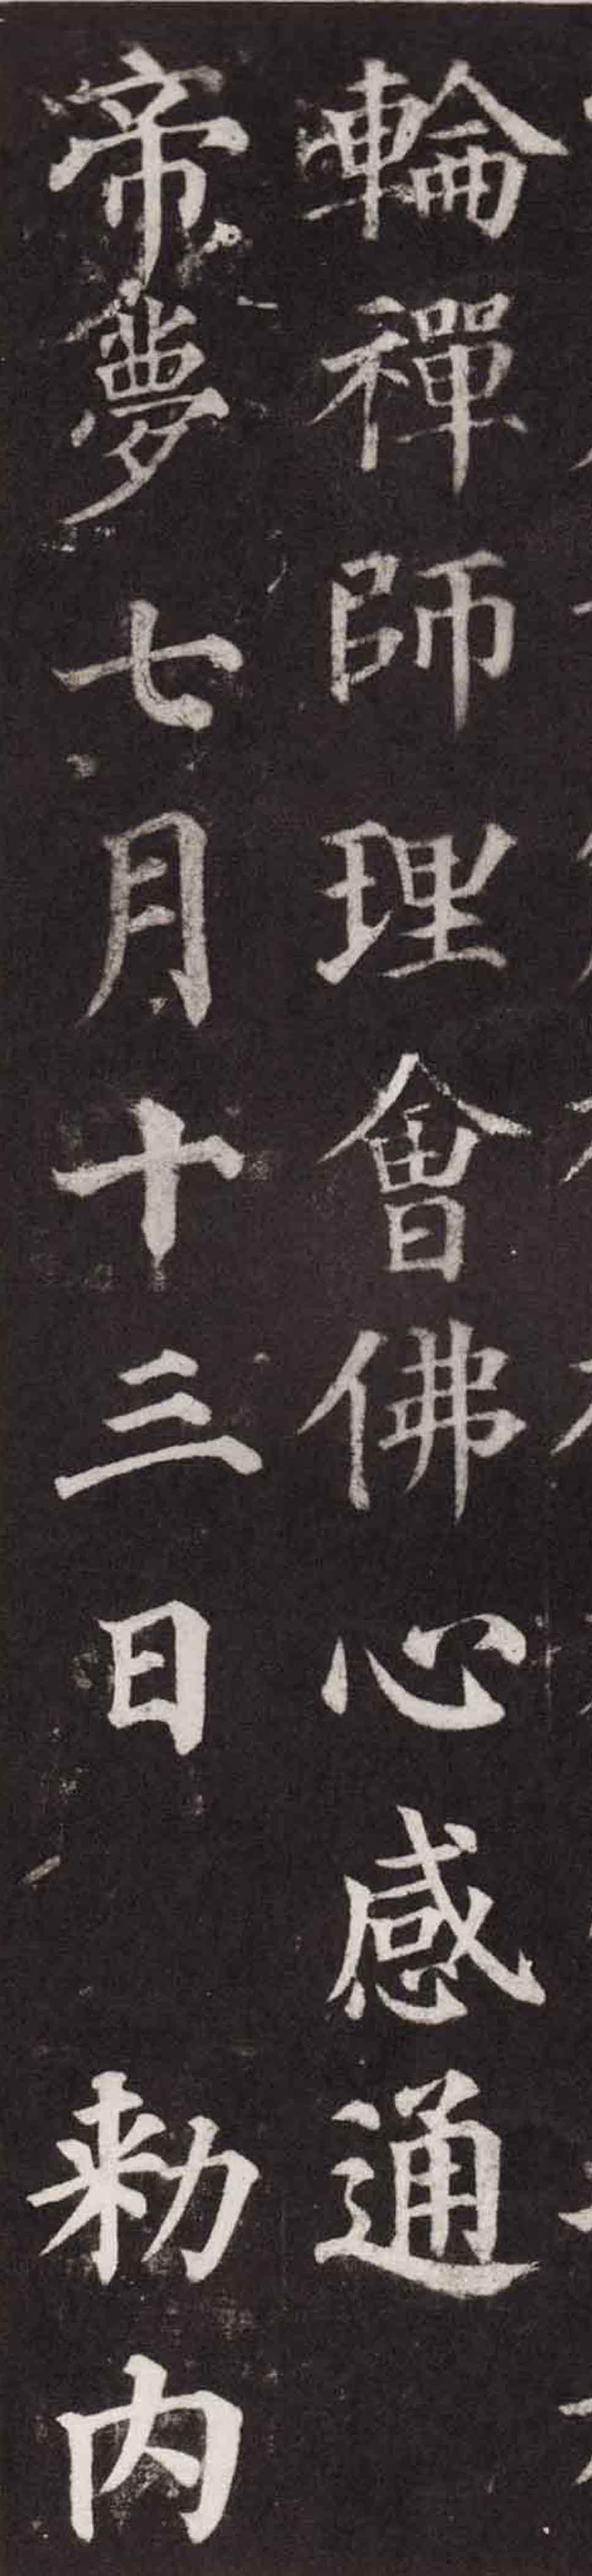 輪禪師理會佛心感通
帝夢七月十三日勑内